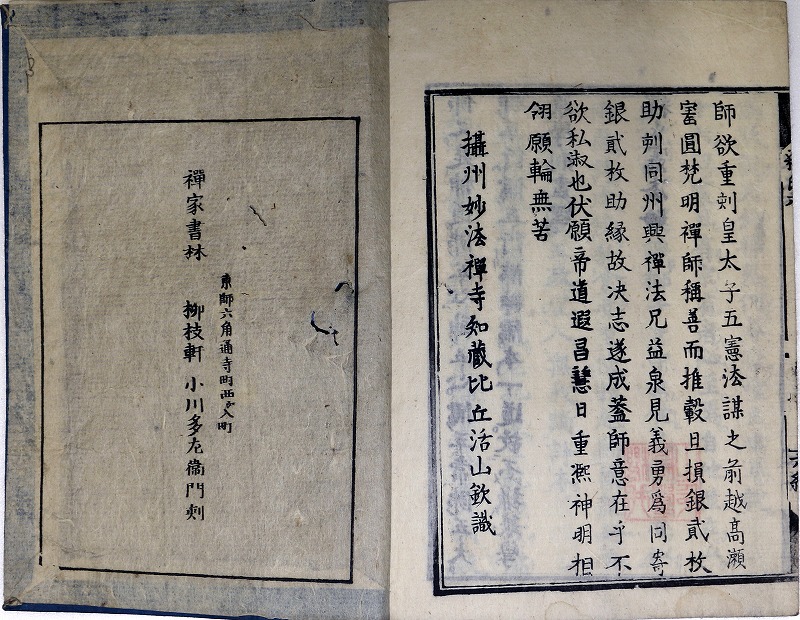 師欲重刻皇太子五憲法謀之前越高瀬
富圓梵明禪師稱善而推轂且損銀貳枚
助刺同州興禪法兄益泉見義勇爲同寄
銀貳枚助縁故决志遂成蓋師意在乎不
欲私淑也伏願帝道遐昌慧日重凞神明相
翎願輪無苦
攝州妙法禪寺知藏比丘活山欽識
禪家書林
東師六角通寺町西文町
柳枝軒 小川多左衞門刺